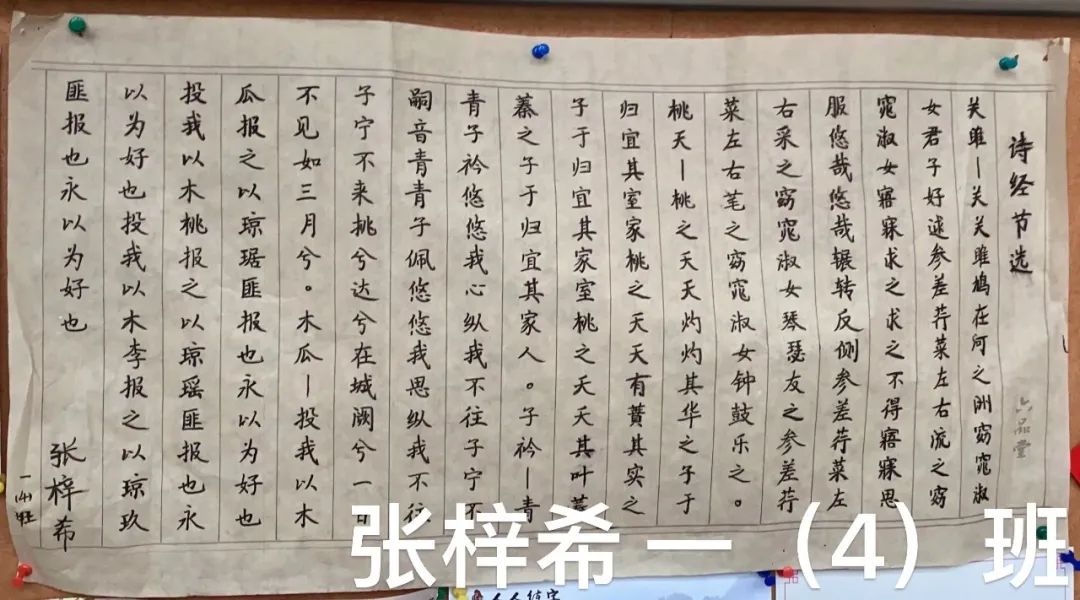 诗经节选
六品堂
关雎—关关雎鸠在河之洲窈窕淑
女君子好逑参差荇菜左右流之窈
窕淑女寤寐求之求之不得寤寐思
服悠哉悠哉辗转反侧参差荇菜左
右采之窈窕淑女琴瑟友之参差荇
菜左右芼之窈窕淑女钟鼓乐之。
桃夭—桃之夭夭灼灼其华之子于
归宜其室家桃之夭夭有蕡其实之
子于归宜其家室桃之夭夭其叶蓁
蓁之子于归宜其家人。子衿—青
青子衿悠悠我心纵我不往子宁不
嗣音青青子佩悠悠我思纵我不往
子宁不来挑兮达兮在城阙兮一日
不见如三月兮。木瓜—投我以木
瓜报之以琼琚匪报也永以为好也
投我以木桃报之以琼瑶匪报也永
以为好也投我以木李报之以琼玖
匪报也永以为好也
张梓希
一(4)班
张梓希 一（4）班